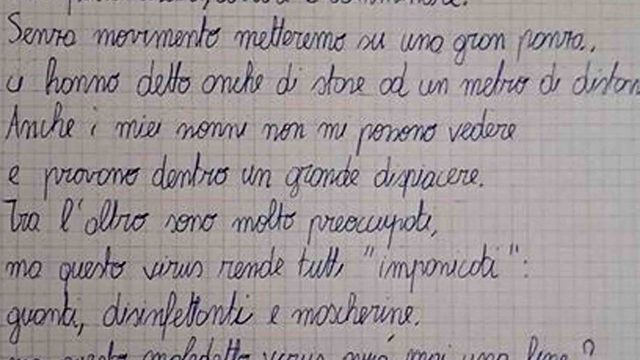 Senza movimento metteremo su una gran panza,
ci hanno detto anche di stare ad un metro di distan
Anche i miei nonni non mi possono vedere
e provano dentro un grande dispiacere.
Tra l'altro sono molto preoccupati,
ma questo virus rende tutti "impanicati":
guanti, disinfettanti e mascherine.
questo maledetto virus avrà mai una fine?